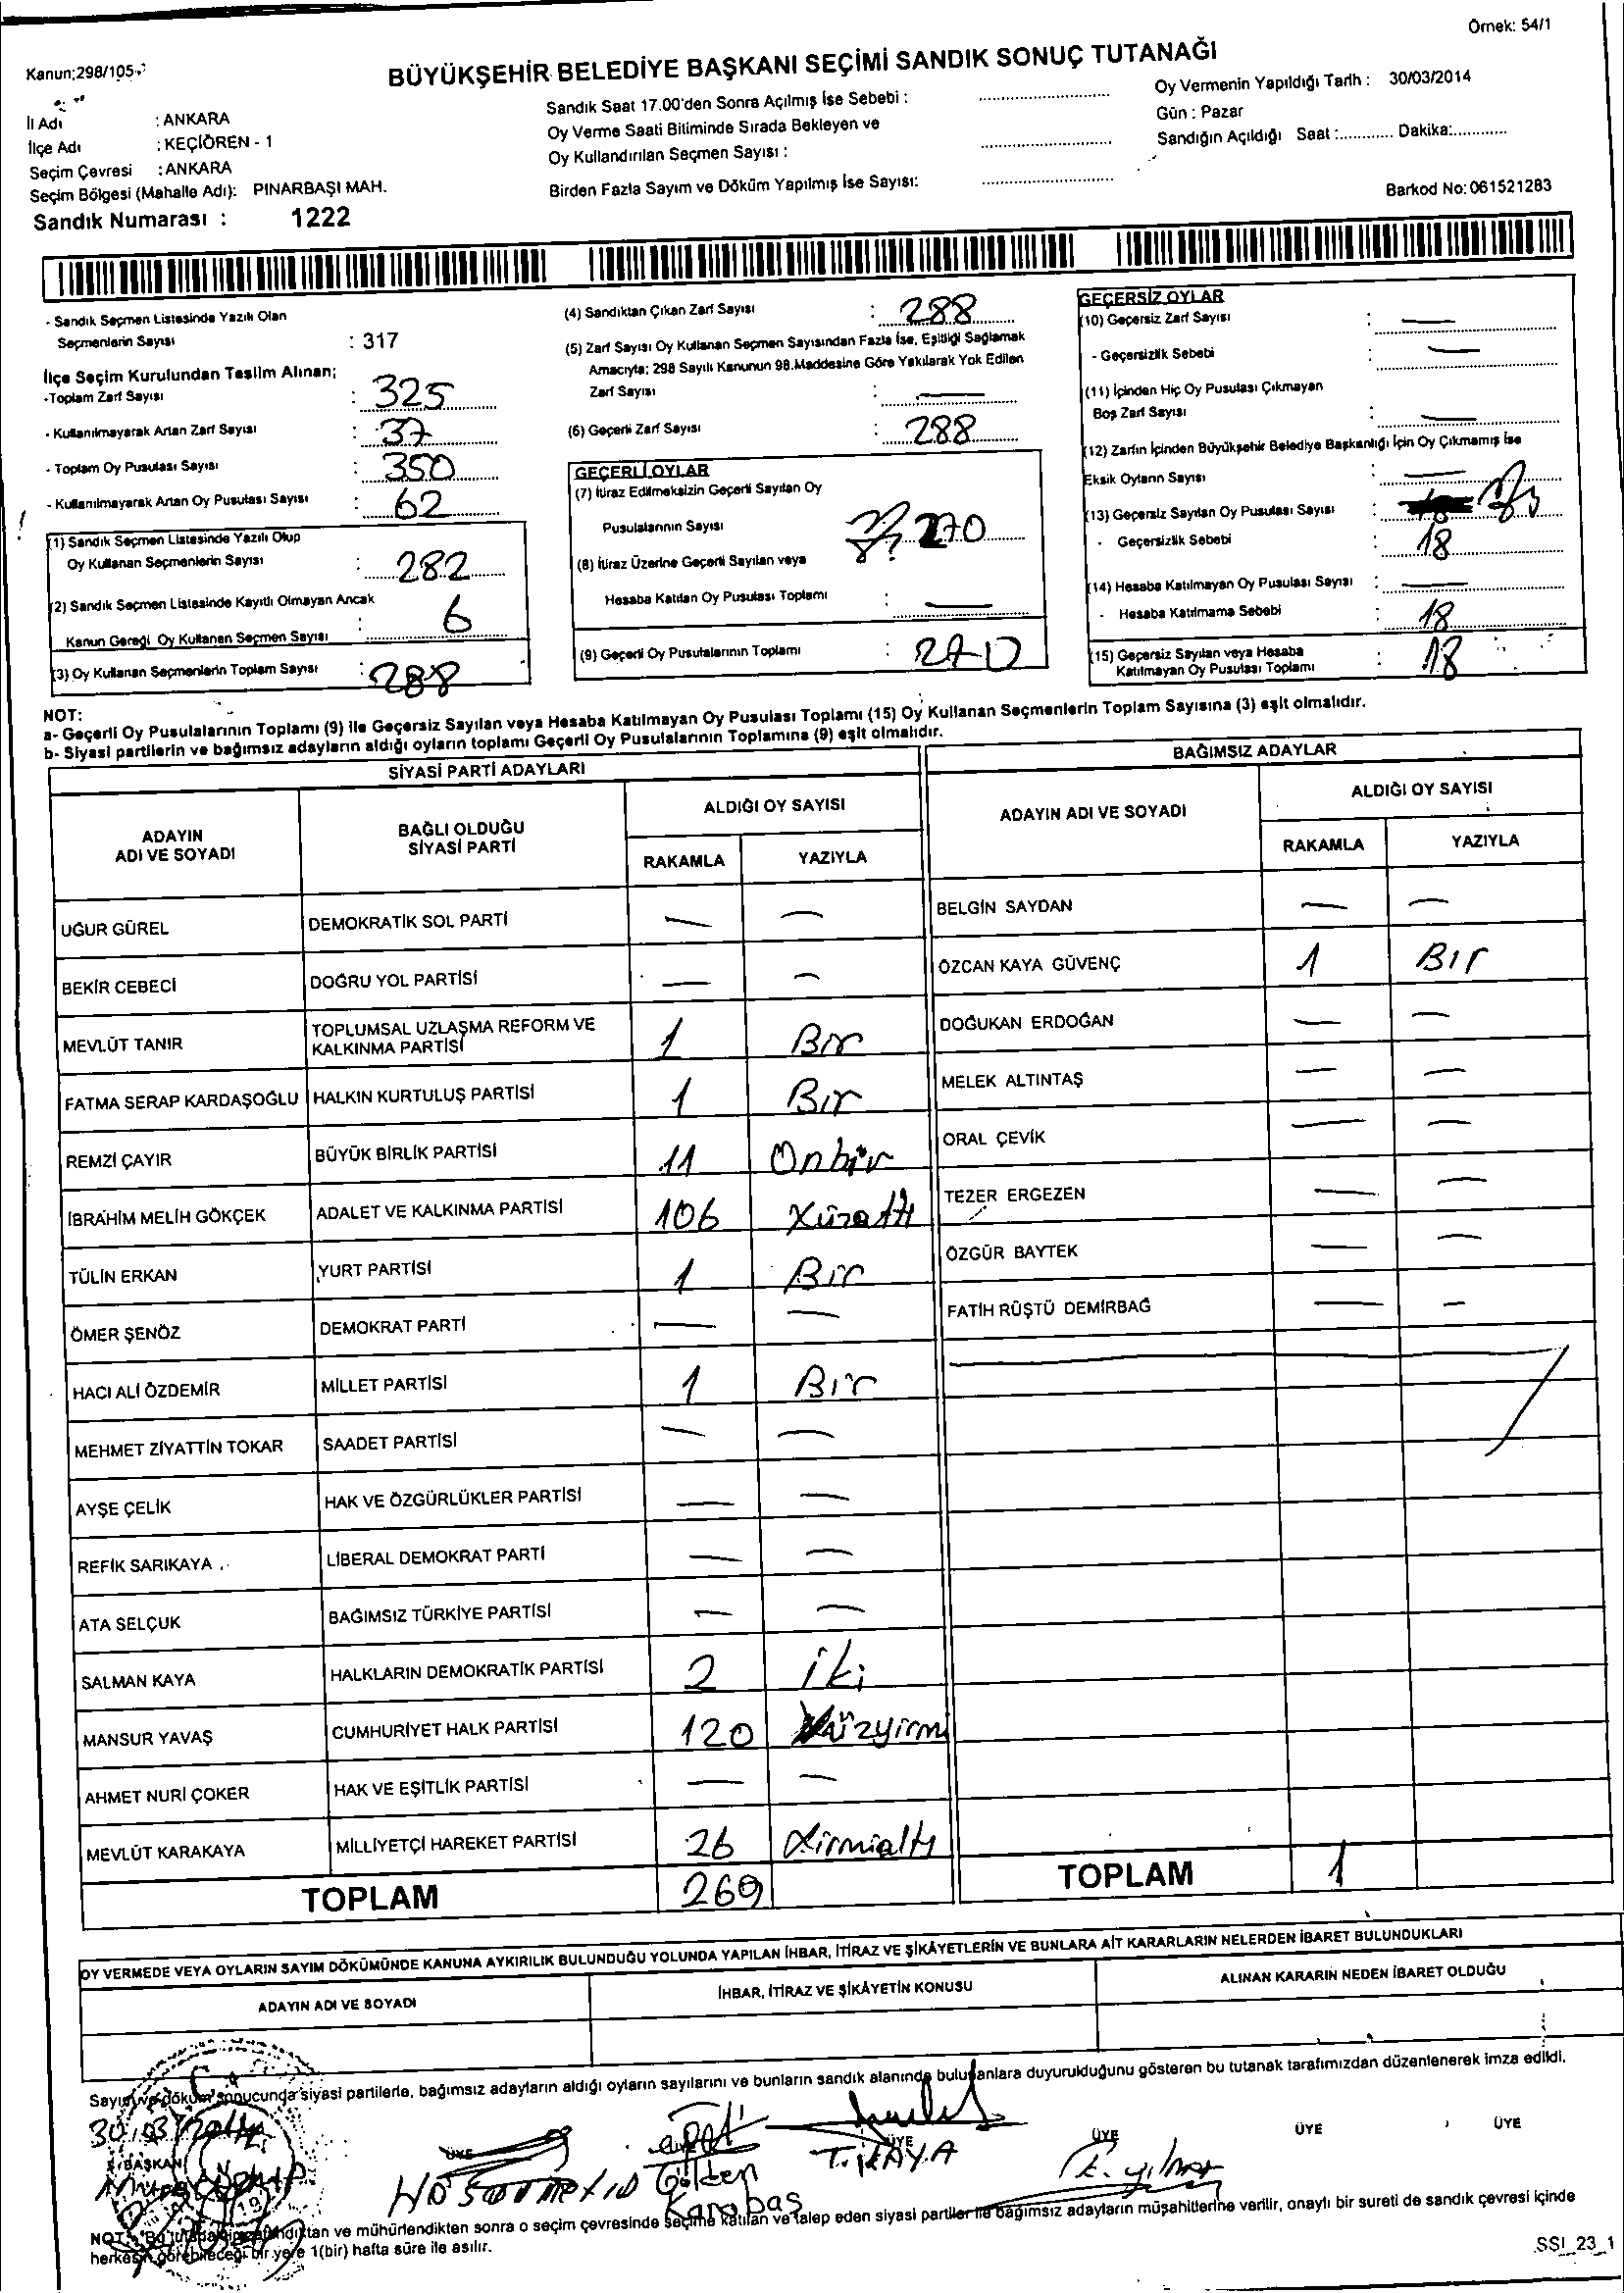 Örnek: 54/1
Kanun;298/105
BÜYÜKŞEHİR BELEDİYE BAŞKANI SEÇİMİ SANDIK SONUÇ TUTANAĞI
İl Adı : ANKARA
İlçe Adı : KEÇİÖREN - 1
Seçim Çevresi : ANKARA
Seçim Bölgesi (Mahalle Adı): PINARBAŞI MAH.
Sandık Numarası : 1222
Sandık Saat 17.00'den Sonra Açılmış İse Sebebi :
Oy Verme Saati Bitiminde Sırada Bekleyen ve
Oy Kullandırılan Seçmen Sayısı :
Birden Fazla Sayım ve Döküm Yapılmış İse Sayısı:
Oy Vermenin Yapıldığı Tarih : 30/03/2014
Gün : Pazar
Sandığın Açıldığı Saat :............ Dakika:............
Barkod No: 061521283
- Sandık Seçmen Listesinde Yazılı Olan
Seçmenlerin Sayısı : 317
İlçe Seçim Kurulundan Teslim Alınan;
-Toplam Zarf Sayısı : 325
- Kullanılmayarak Artan Zarf Sayısı : 37
- Toplam Oy Pusulası Sayısı : 350
- Kullanılmayarak Artan Oy Pusulası Sayısı : 62
(1) Sandık Seçmen Listesinde Yazılı Olup
Oy Kullanan Seçmenlerin Sayısı : 282
(2) Sandık Seçmen Listesinde Kayıtlı Olmayan Ancak
Kanun Gereği Oy Kullanan Seçmen Sayısı : 6
(3) Oy Kullanan Seçmenlerin Toplam Sayısı : 288
(4) Sandıktan Çıkan Zarf Sayısı : 288
(5) Zarf Sayısı Oy Kullanan Seçmen Sayısından Fazla İse, Eşitliği Sağlamak
Amacıyla; 298 Sayılı Kanunun 98.Maddesine Göre Yakılarak Yok Edilen
Zarf Sayısı : —
(6) Geçerli Zarf Sayısı : 288
GEÇERLİ OYLAR
(7) İtiraz Edilmeksizin Geçerli Sayılan Oy
Pusulalarının Sayısı 270
(8) İtiraz Üzerine Geçerli Sayılan veya
Hesaba Katılan Oy Pusulası Toplamı : —
(9) Geçerli Oy Pusulalarının Toplamı : 270
GEÇERSİZ OYLAR
(10) Geçersiz Zarf Sayısı : —
- Geçersizlik Sebebi : —
(11) İçinden Hiç Oy Pusulası Çıkmayan
Boş Zarf Sayısı : —
(12) Zarfın İçinden Büyükşehir Belediye Başkanlığı İçin Oy Çıkmamış İse
Eksik Oyların Sayısı : —
(13) Geçersiz Sayılan Oy Pusulası Sayısı : 18
- Geçersizlik Sebebi : 18
(14) Hesaba Katılmayan Oy Pusulası Sayısı : —
- Hesaba Katılmama Sebebi : 18
(15) Geçersiz Sayılan veya Hesaba
Katılmayan Oy Pusulası Toplamı : 18
NOT:
a- Geçerli Oy Pusulalarının Toplamı (9) ile Geçersiz Sayılan veya Hesaba Katılmayan Oy Pusulası Toplamı (15) Oy Kullanan Seçmenlerin Toplam Sayısına (3) eşit olmalıdır.
b- Siyasi partilerin ve bağımsız adayların aldığı oyların toplamı Geçerli Oy Pusulalarının Toplamına (9) eşit olmalıdır.
SİYASİ PARTİ ADAYLARI
ADAYIN ADI VE SOYADI BAĞLI OLDUĞU SİYASİ PARTİ ALDIĞI OY SAYISI
RAKAMLA YAZIYLA
UĞUR GÜREL DEMOKRATİK SOL PARTİ — —
BEKİR CEBECİ DOĞRU YOL PARTİSİ — —
MEVLÜT TANIR TOPLUMSAL UZLAŞMA REFORM VE KALKINMA PARTİSİ 1 Bir
FATMA SERAP KARDAŞOĞLU HALKIN KURTULUŞ PARTİSİ 1 Bir
REMZİ ÇAYIR BÜYÜK BİRLİK PARTİSİ 11 Onbir
İBRAHİM MELİH GÖKÇEK ADALET VE KALKINMA PARTİSİ 106 Yüzaltı
TÜLİN ERKAN YURT PARTİSİ 1 Bir
ÖMER ŞENÖZ DEMOKRAT PARTİ — —
HACI ALİ ÖZDEMİR MİLLET PARTİSİ 1 Bir
MEHMET ZİYATTİN TOKAR SAADET PARTİSİ — —
AYŞE ÇELİK HAK VE ÖZGÜRLÜKLER PARTİSİ — —
REFİK SARIKAYA LİBERAL DEMOKRAT PARTİ — —
ATA SELÇUK BAĞIMSIZ TÜRKİYE PARTİSİ — —
SALMAN KAYA HALKLARIN DEMOKRATİK PARTİSİ 2 iki
MANSUR YAVAŞ CUMHURİYET HALK PARTİSİ 120 Yüzyirmi
AHMET NURİ ÇOKER HAK VE EŞİTLİK PARTİSİ — —
MEVLÜT KARAKAYA MİLLİYETÇİ HAREKET PARTİSİ 26 Yirmialtı
TOPLAM 269
BAĞIMSIZ ADAYLAR
ADAYIN ADI VE SOYADI ALDIĞI OY SAYISI
RAKAMLA YAZIYLA
BELGİN SAYDAN — —
ÖZCAN KAYA GÜVENÇ 1 Bir
DOĞUKAN ERDOĞAN — —
MELEK ALTINTAŞ — —
ORAL ÇEVİK — —
TEZER ERGEZEN — —
ÖZGÜR BAYTEK — —
FATİH RÜŞTÜ DEMİRBAĞ — —
TOPLAM 1
OY VERMEDE VEYA OYLARIN SAYIM DÖKÜMÜNDE KANUNA AYKIRILIK BULUNDUĞU YOLUNDA YAPILAN İHBAR, İTİRAZ VE ŞİKÂYETLERİN VE BUNLARA AİT KARARLARIN NELERDEN İBARET BULUNDUKLARI
ADAYIN ADI VE SOYADI İHBAR, İTİRAZ VE ŞİKÂYETİN KONUSU ALINAN KARARIN NEDEN İBARET OLDUĞU
Sayım ve döküm sonucunda siyasi partilerle, bağımsız adayların aldığı oyların sayılarını ve bunların sandık alanında bulunanlara duyurulduğunu gösteren bu tutanak tarafımızdan düzenlenerek imza edildi.
30.03.2014
BAŞKAN ÜYE ÜYE ÜYE ÜYE ÜYE
Gülden Karabaş T. KAYA E. yılmaz
NOT: Bu tutanak ve mühürlendikten sonra o seçim çevresinde seçime katılan ve talep eden siyasi partiler ile bağımsız adayların müşahitlerine verilir, onaylı bir sureti de sandık çevresi içinde
herkesin görebileceği bir yere 1(bir) hafta süre ile asılır.
SSİ_23_1